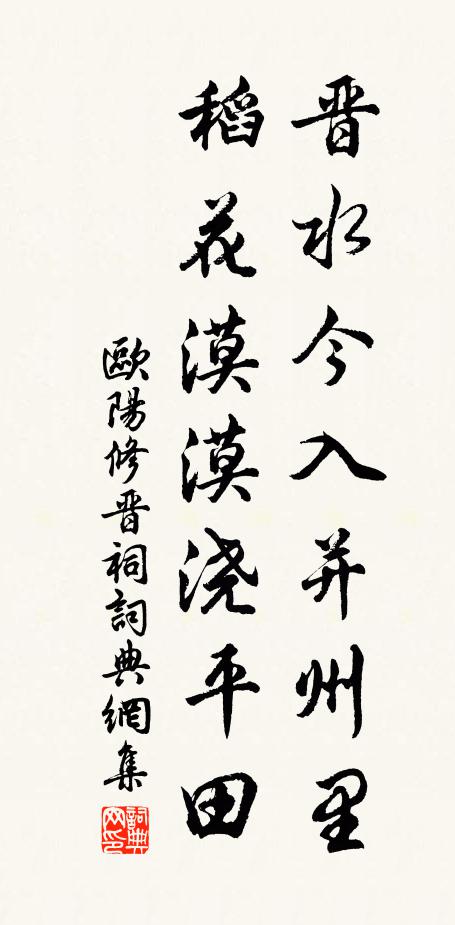 晋水今入并州里
稻花漠漠浇平田
歐陽修晋祠詞典網集
詞典网印